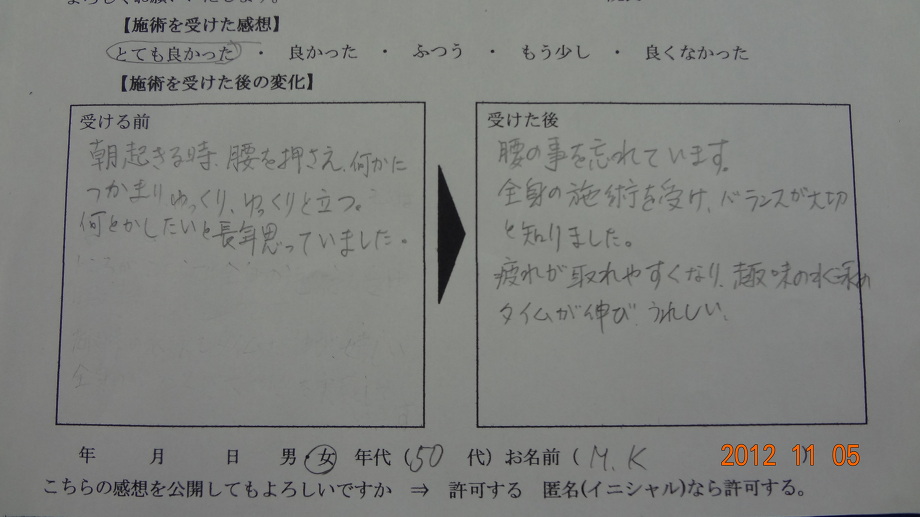 【施術を受けた感想】
とても良かった ・ 良かった ・ ふつう ・ もう少し ・ 良くなかった
【施術を受けた後の変化】
受ける前
朝起きる時、腰を押さえ、何かに
つかまりゆっくり、ゆっくりと立つ。
何とかしたいと長年思っていました。
受けた後
腰の事を忘れています。
全身の施術を受け、バランスが大切
と知りました。
疲れが取れやすくなり、趣味の
タイムが伸び、うれしい、
年 月 日 男・女 年代（50 代）お名前（M.K ）
2012 11 05
こちらの感想を公開してもよろしいですか ⇒ 許可する 匿名(イニシャル)なら許可する。